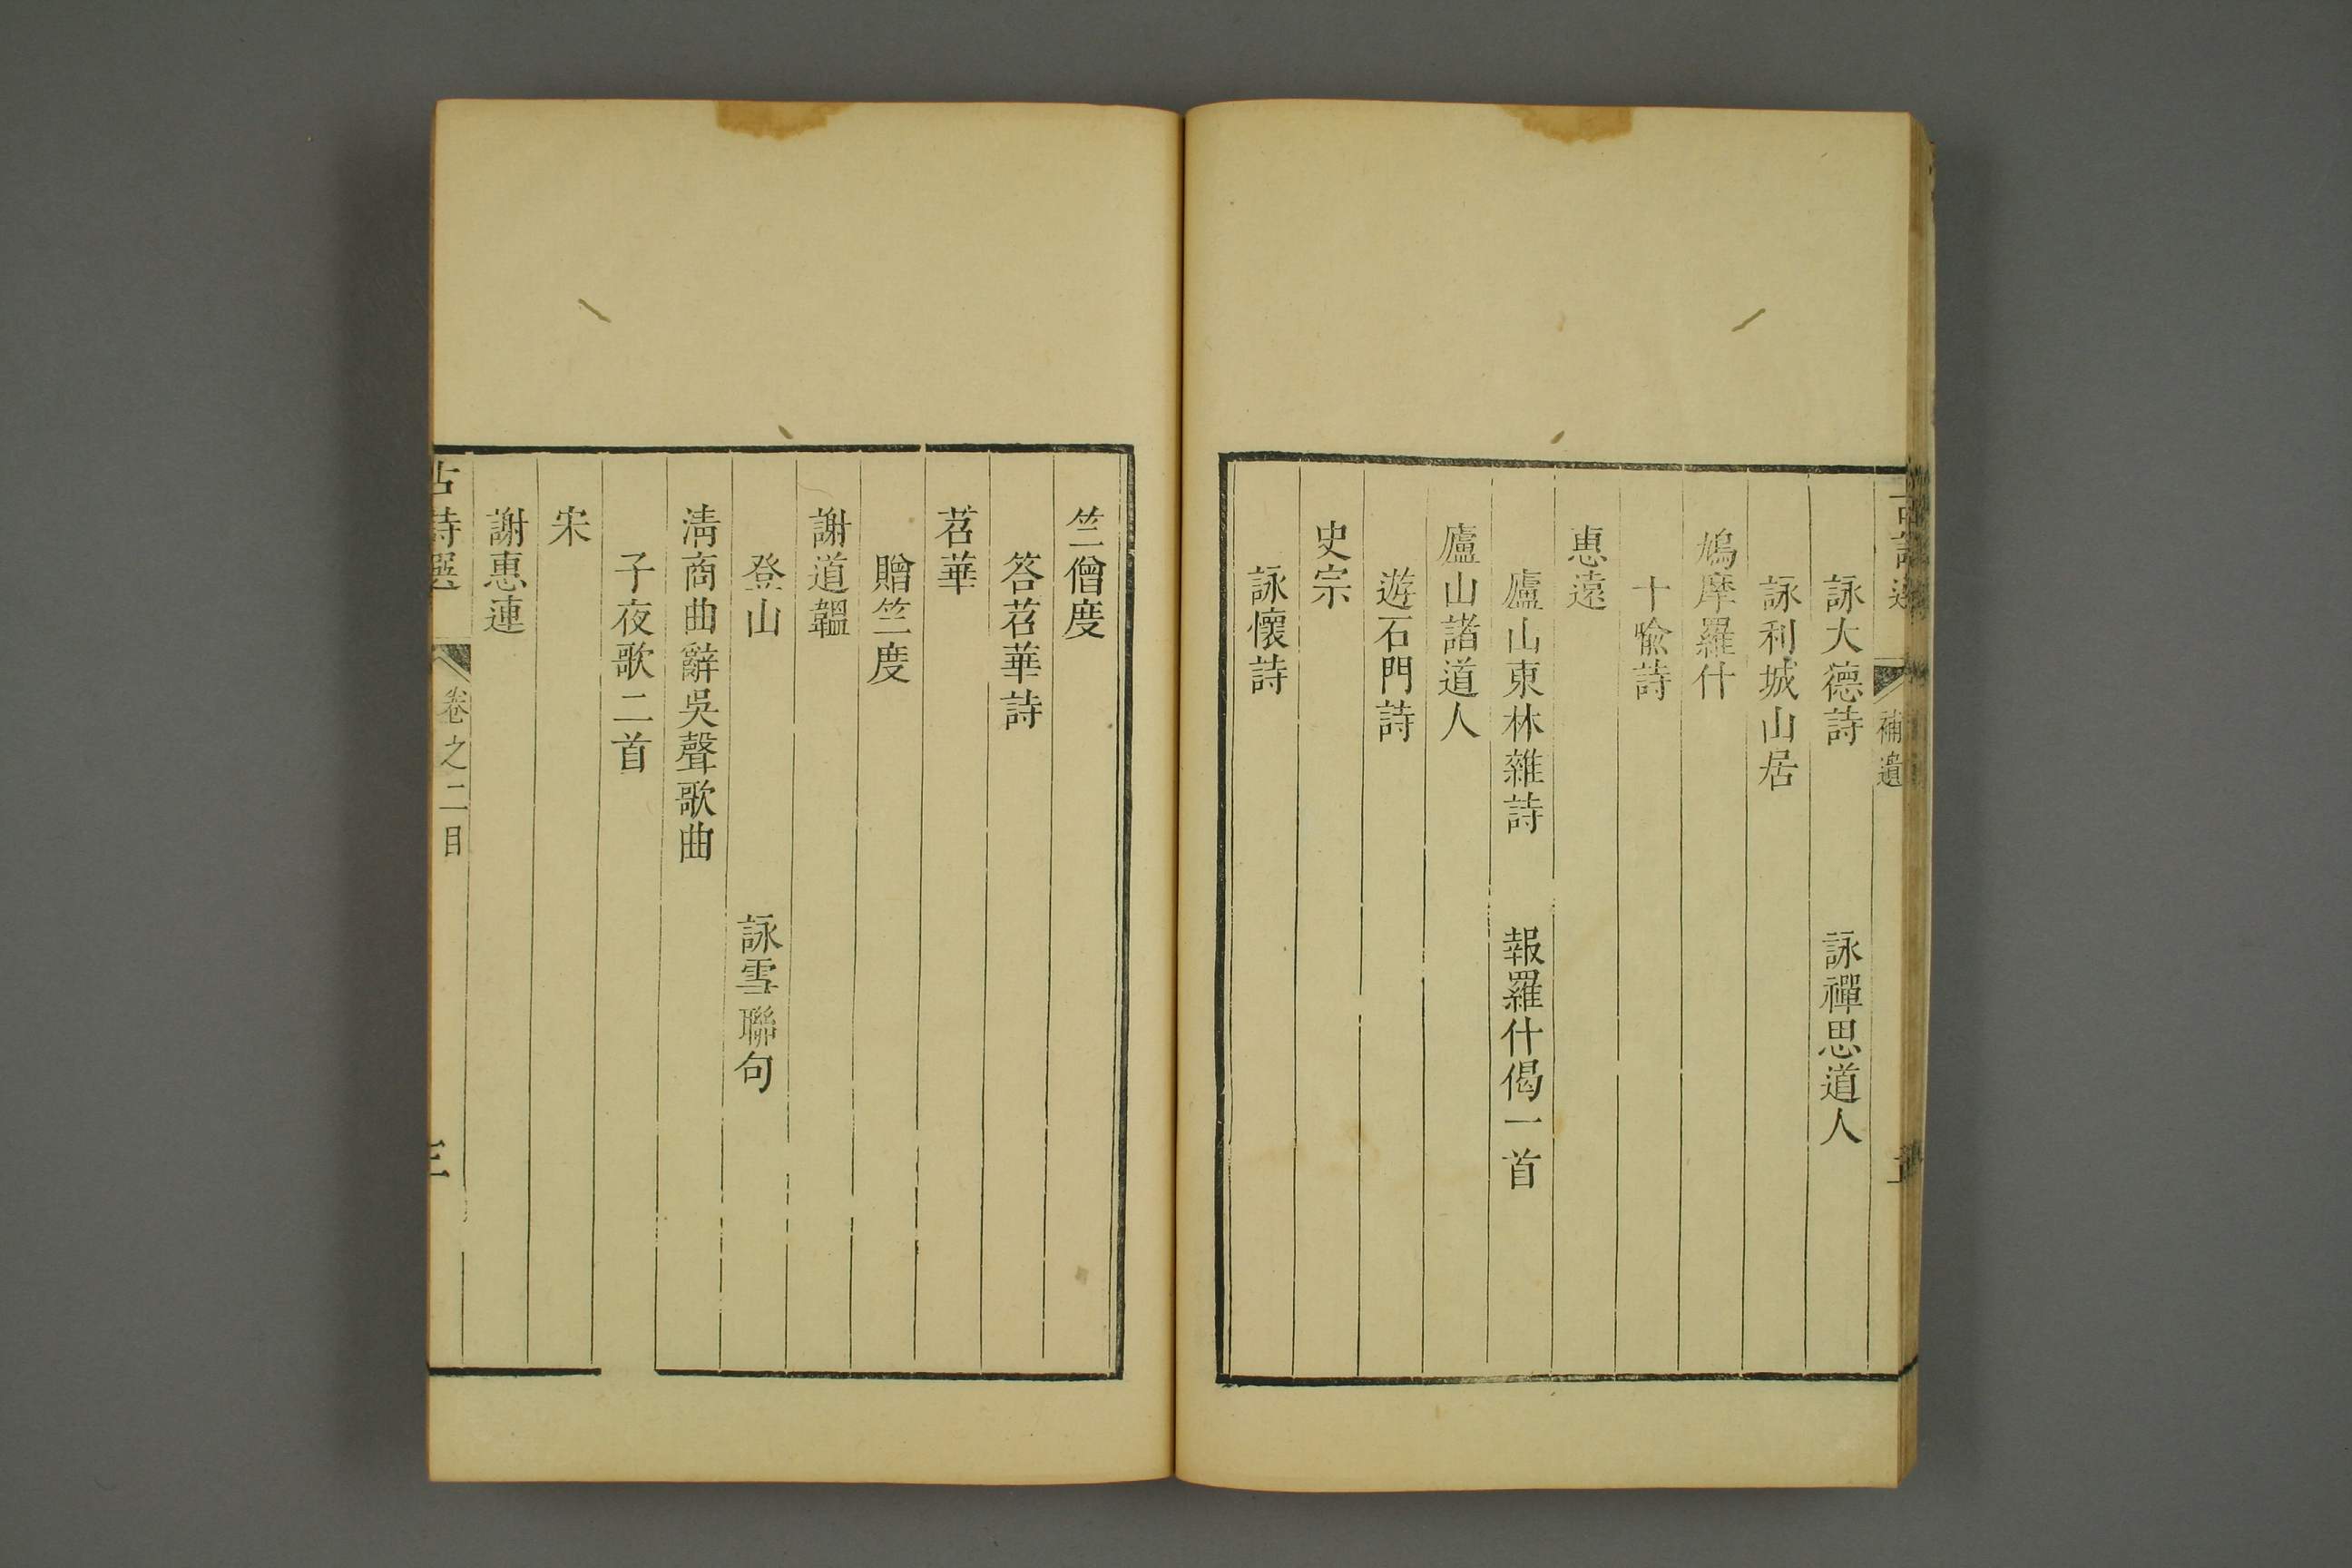 補遺
詠大德詩 詠禪思道人
詠利城山居
鳩摩羅什
十喻詩
惠遠
廬山東林雜詩 報羅什偈一首
廬山諸道人
遊石門詩
史宗
詠懷詩
竺僧度
答苕華詩
苕華
贈竺度
謝道韞
登山 詠雪聯句
清商曲辭吳聲歌曲
子夜歌二首
宋
謝惠連
古詩選 卷之二目 三